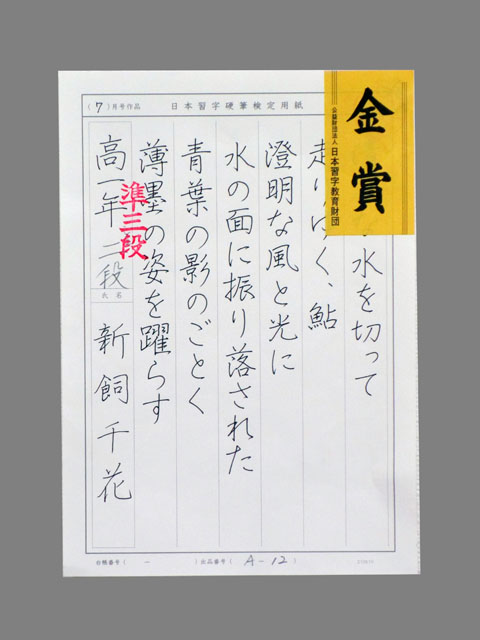 (7)月号作品 日本習字硬筆検定用紙
金賞
公益財団法人 日本習字教育財団
水を切って
く、鮎
澄明な風と光に
水の面に振り落された
青葉の影のごとく
薄墨の姿を躍らす
準三段
高一年 二段
氏名
新飼千花
台帳番号( ー )出品番号( A-12 )